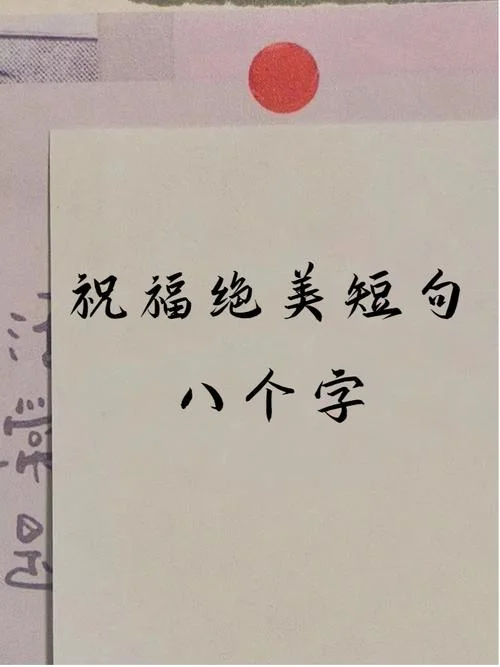 祝福绝美短句
八个字